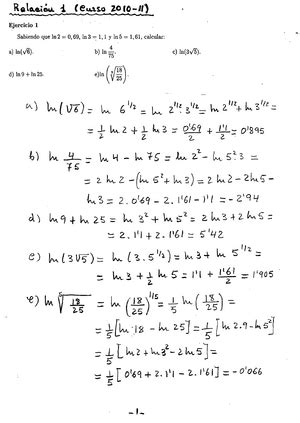 Relación 1 (Curso 2010-11)
Ejercicio 1
Sabiendo que ln 2 = 0,69, ln 3 = 1,1 y ln 5 = 1,61, calcular:
a) ln(√6). b) ln 4/75. c) ln(3√5).
d) ln 9 + ln 25. e) ln(⁵√(18/25)).
a) ln(√6) = ln 6^1/2 = ln 2^1/2 · 3^1/2 = ln 2^1/2 + ln 3^1/2 =
= 1/2 ln 2 + 1/2 ln 3 = 0'69/2 + 1'1/2 = 0'895
b) ln 4/75 = ln 4 - ln 75 = ln 2² - ln 5²·3 =
= 2 ln 2 - (ln 5² + ln 3) = 2 ln 2 - 2 ln 5 -
ln 3 = 2·0'69 - 2·1'61 - 1'1 = -2'94
d) ln 9 + ln 25 = ln 3² + ln 5² = 2 ln 3 + 2 ln 5 =
= 2·1'1 + 2·1'61 = 5'42
c) ln(3√5) = ln(3·5^1/2) = ln 3 + ln 5^1/2 =
= ln 3 + 1/2 ln 5 = 1'1 + 1'61/2 = 1'905
e) ln ⁵√(18/25) = ln (18/25)^1/5 = 1/5 ln (18/25) =
= 1/5 [ln 18 - ln 25] = 1/5 [ln 2·9 - ln 5²] =
= 1/5 [ln 2 + ln 3² - 2 ln 5] =
= 1/5 [0'69 + 2·1'1 - 2·1'61] = -0'066
-1-